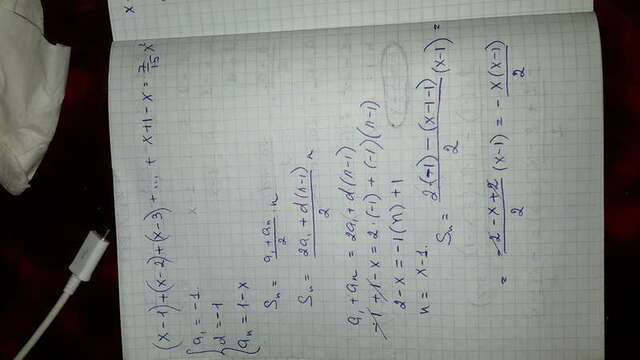 (x-1)+(x-2)+(x-3)+...+ x+1-x = 7/15 x²
{ a₁ = -1.
{ d = -1
{ aₙ = 1-x
Sₙ = (a₁+aₙ)/2 · n
Sₙ = (2a₁+d(n-1))/2 n
a₁+aₙ = 2a₁+d(n-1)
-1+1-x = 2(-1)+(-1)(n-1)
2-x = -1(n)+1
n = x-1.
Sₙ = (2(-1)-(x-1-1))/2 (x-1) =
= (-2-x+2)/2 (x-1) = - x(x-1)/2